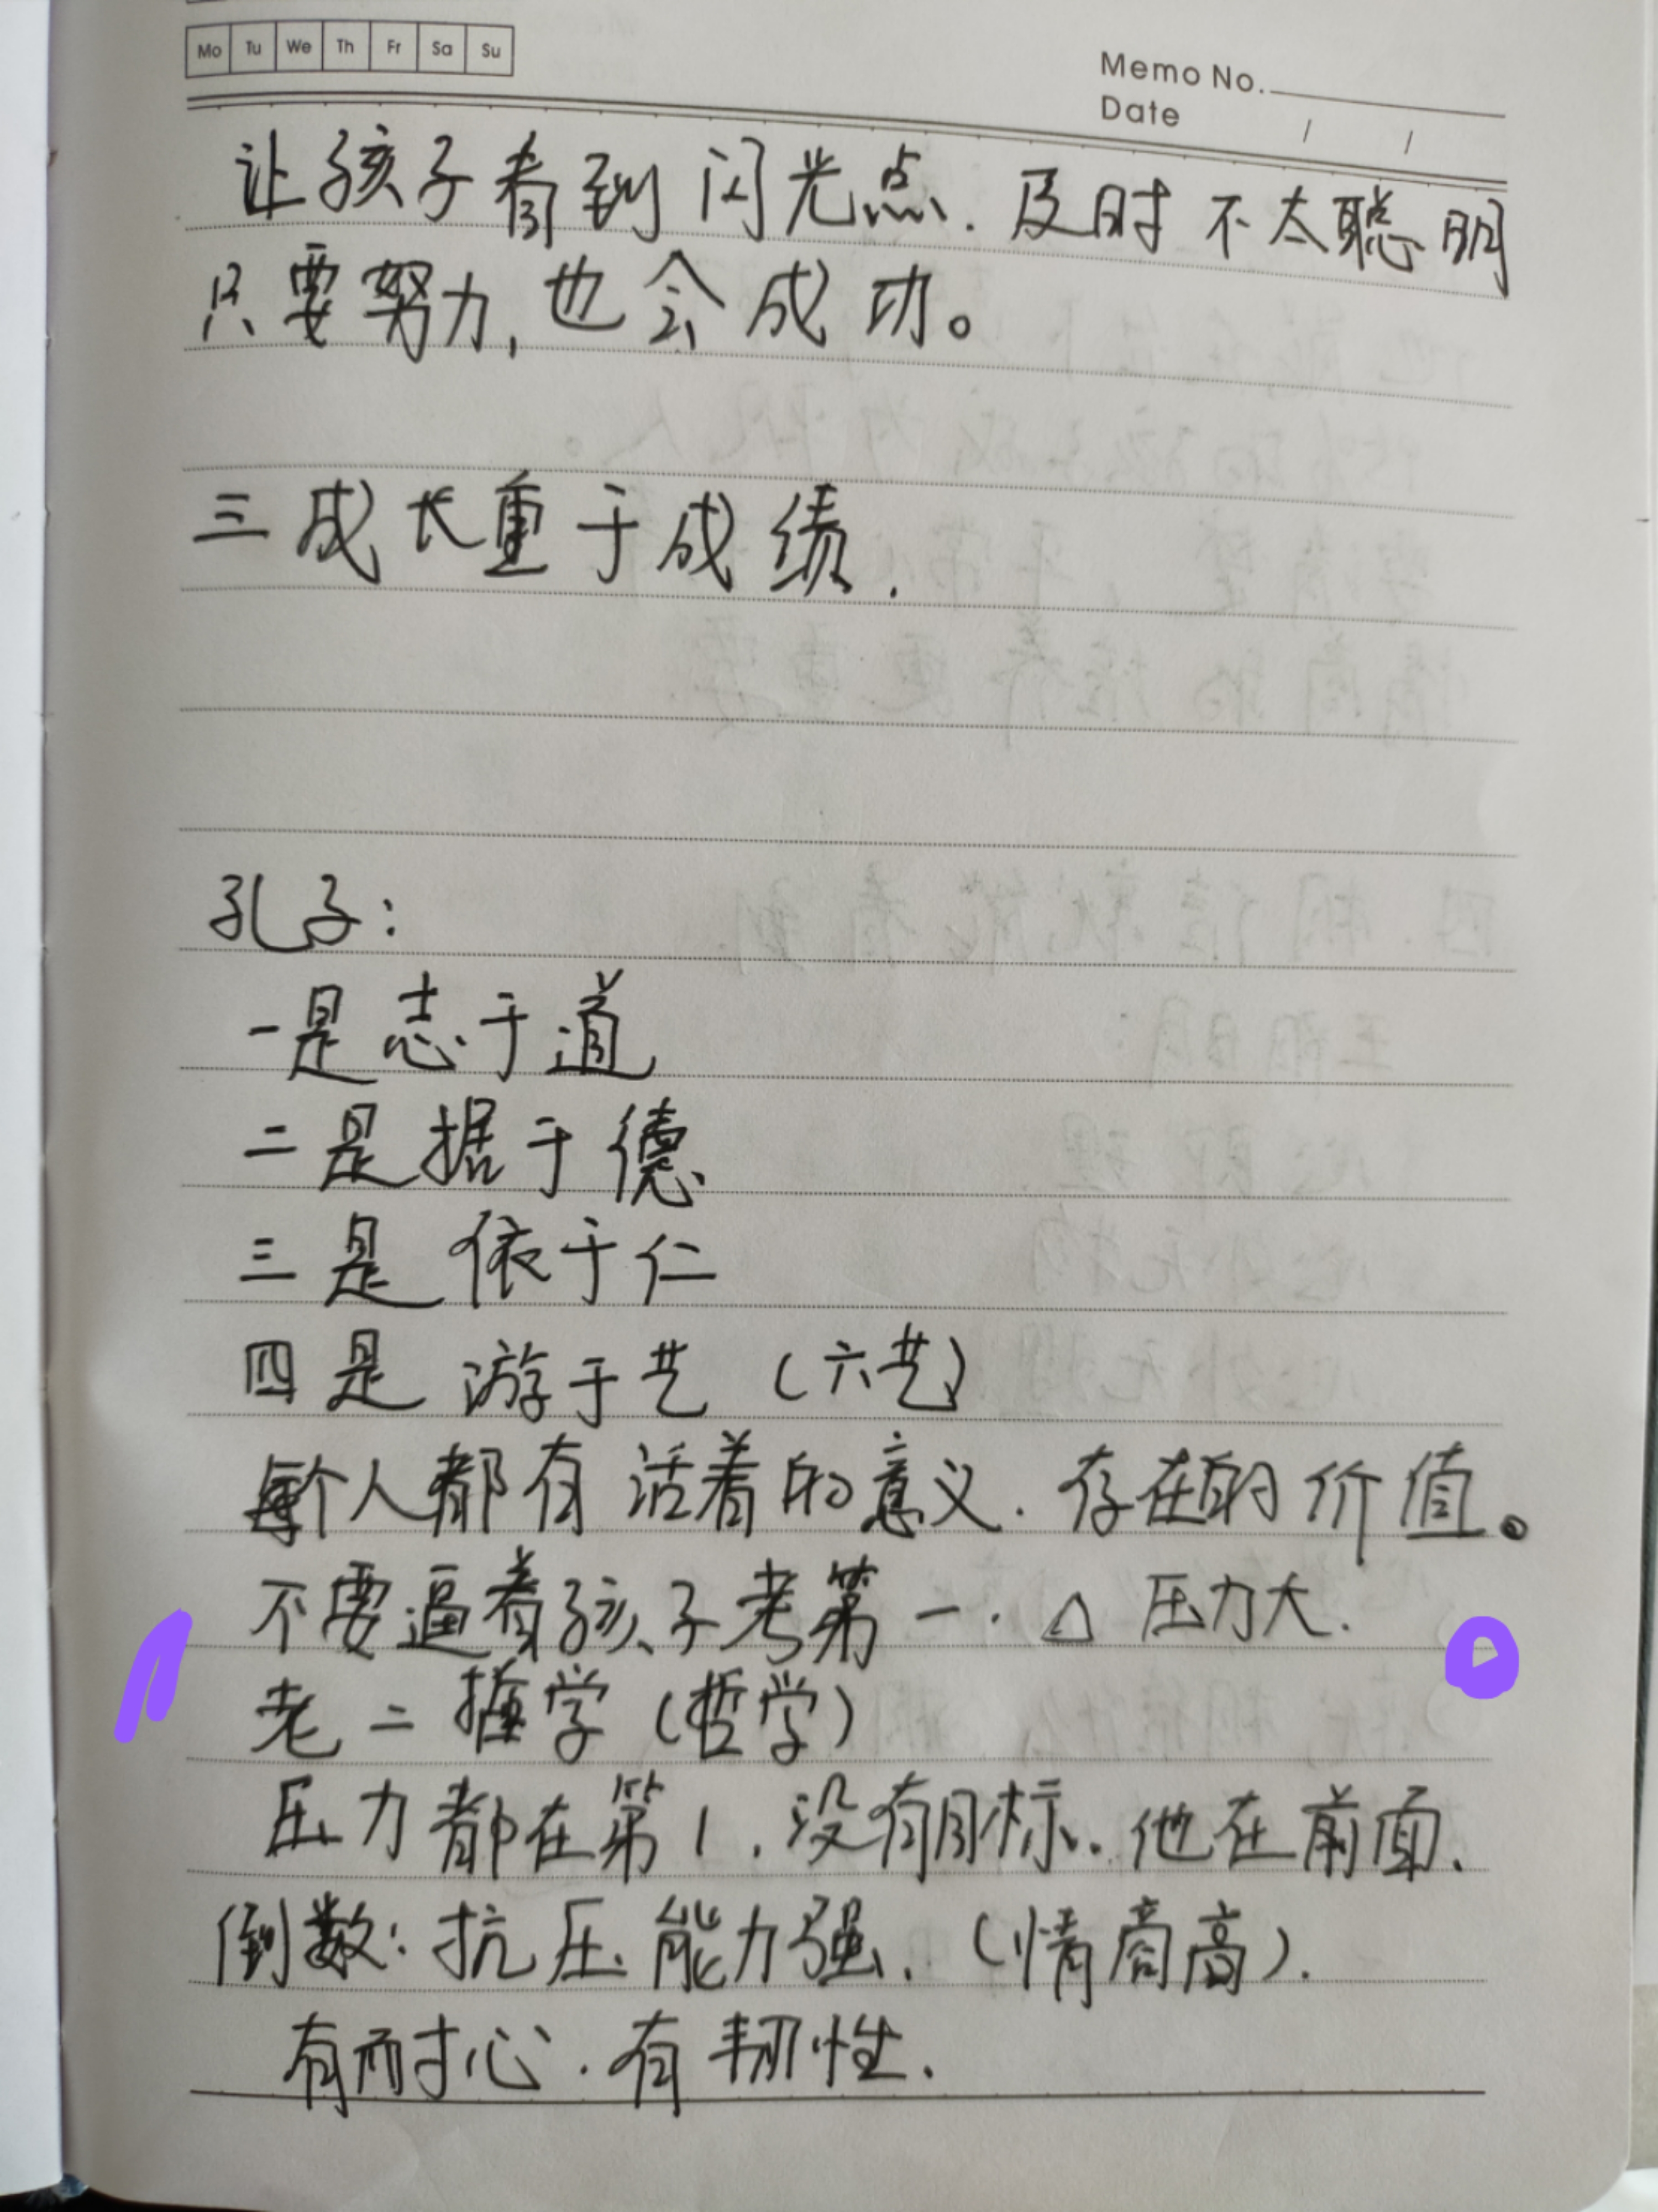 Mo Tu We Th Fr Sa Su
Memo No.
Date / /
让孩子看到闪光点. 及时不太聪明
只要努力, 也会成功。
三成长重于成绩.
孔子:
一是志于道
二是据于德
三是依于仁
四是游于艺 (六艺)
每个人都有活着的意义. 存在的价值。
不要逼着孩子考第一. △ 压力大.
老二 学 (哲学)
压力都在第1. 没有目标. 他在前面.
倒数: 抗压能力强. (情商高).
有耐心. 有韧性.